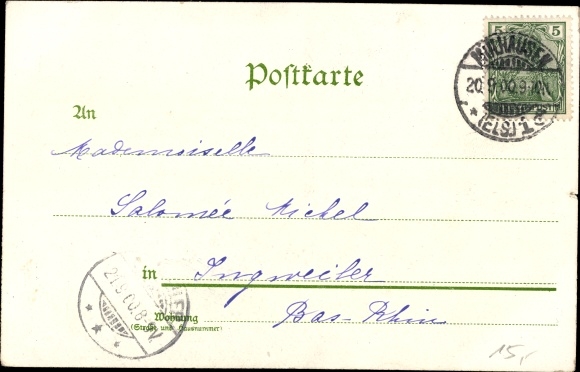 5 5
MÜLHAUSEN
20.9.00.9-10V.
* (ELS) 1 c
Postkarte
An
Mademoiselle
Salomée Michel
in Ingweiler
Bas-Rhin
Wohnung
(Straße und Hausnummer)
21.9.00.8-9V.
15,-